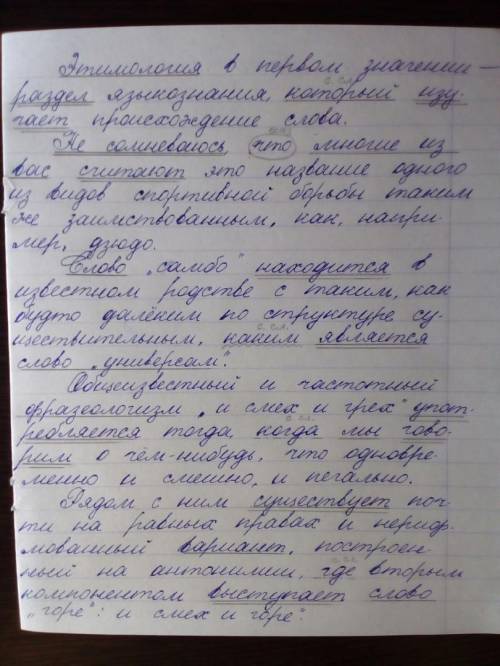 Этимология в первом значении —
с. сл.
раздел языкознания, который изу-
чает происхождение слова.
Не сомневаюсь, что многие из
вас считают это название одного
из видов спортивной борьбы таким
же заимствованным, как, напри-
мер, дзюдо.
Слово „самбо" находится в
известном родстве с таким, как
будто далёким по структуре су-
с. сл.
ществительным, каким является
слово „универсам".
Общеизвестный и частотный
фразеологизм „и смех и грех" упот-
с. сл.
ребляется тогда, когда мы гово-
рим о чём-нибудь, что одновре-
менно и смешно, и печально.
Рядом с ним существует поч-
ти на равных правах и
мованный вариант, построен-
ный на антонимии, где вторым
компонентом выступает слово
„горе": и смех и горе".